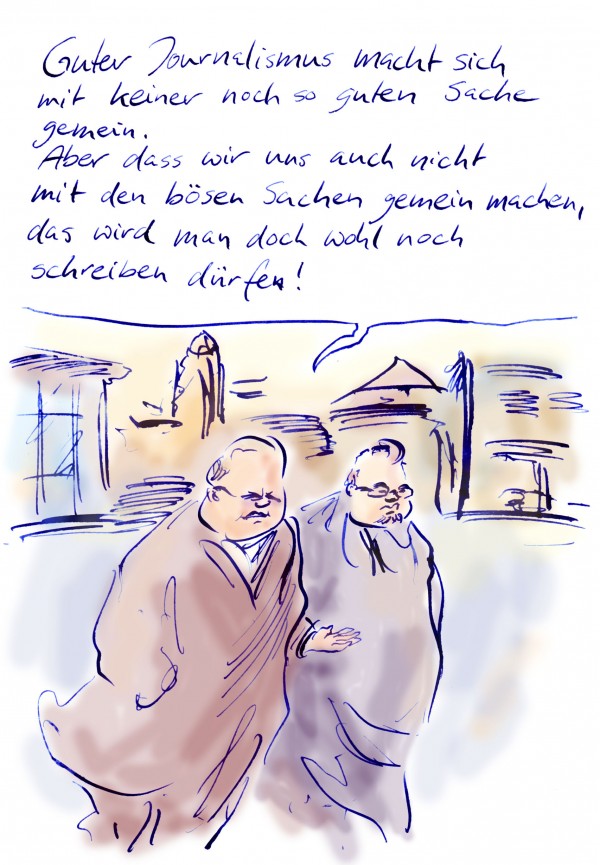 Guter Journalismus macht sich
mit keiner noch so guten Sache
gemein.
Aber dass wir uns auch nicht
mit den bösen Sachen gemein machen,
das wird man doch wohl noch
schreiben dürfen!